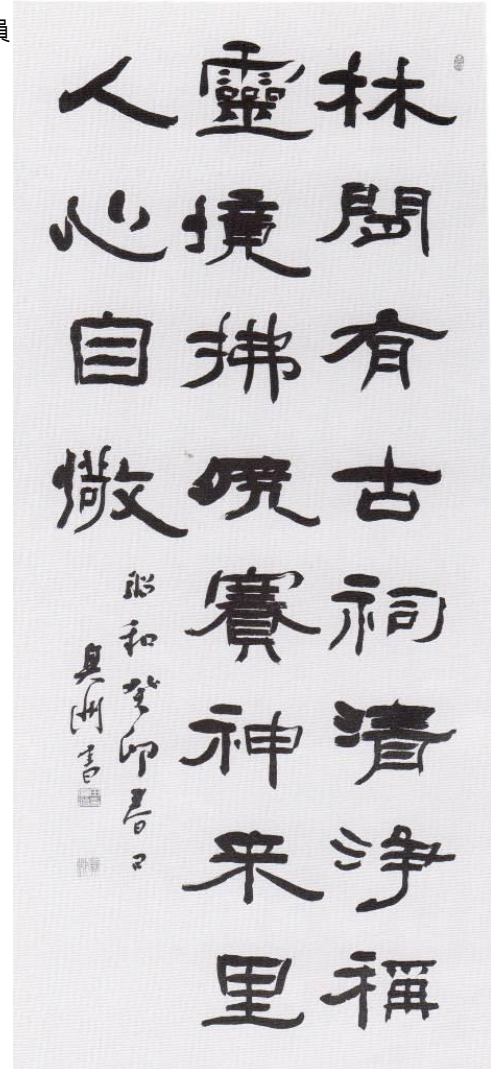 林間有古祠清淨稱
靈境拂曉賽神来里
人心自
昭和癸卯春日
奥洲書